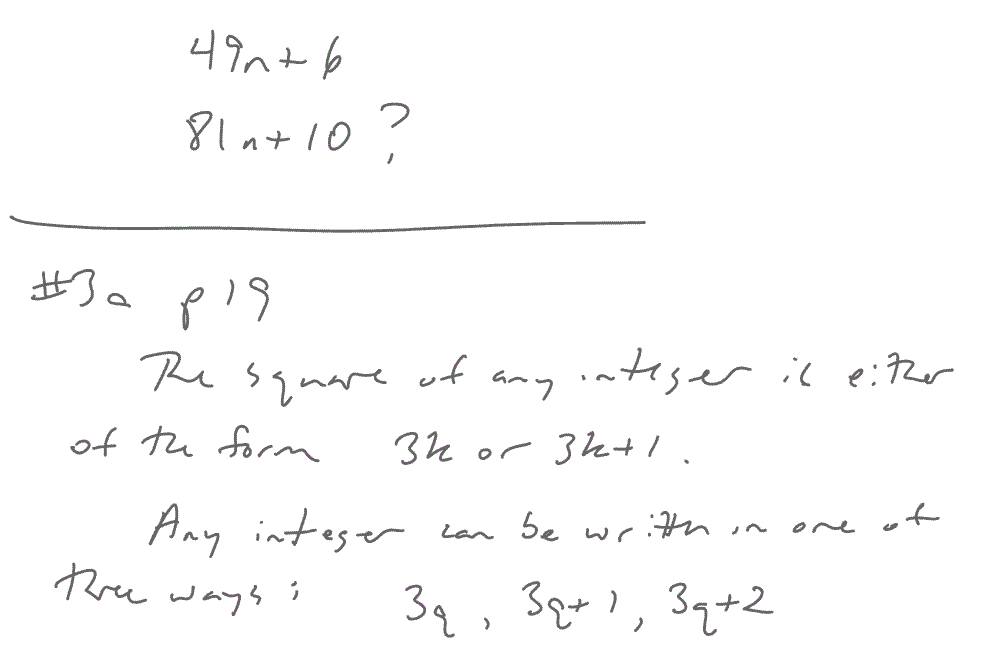 49n+6
81n+10 ?
#3a p19
The square of any integer is either
of the form 3k or 3k+1.
Any integer can be written in one of
three ways: 3q, 3q+1, 3q+2